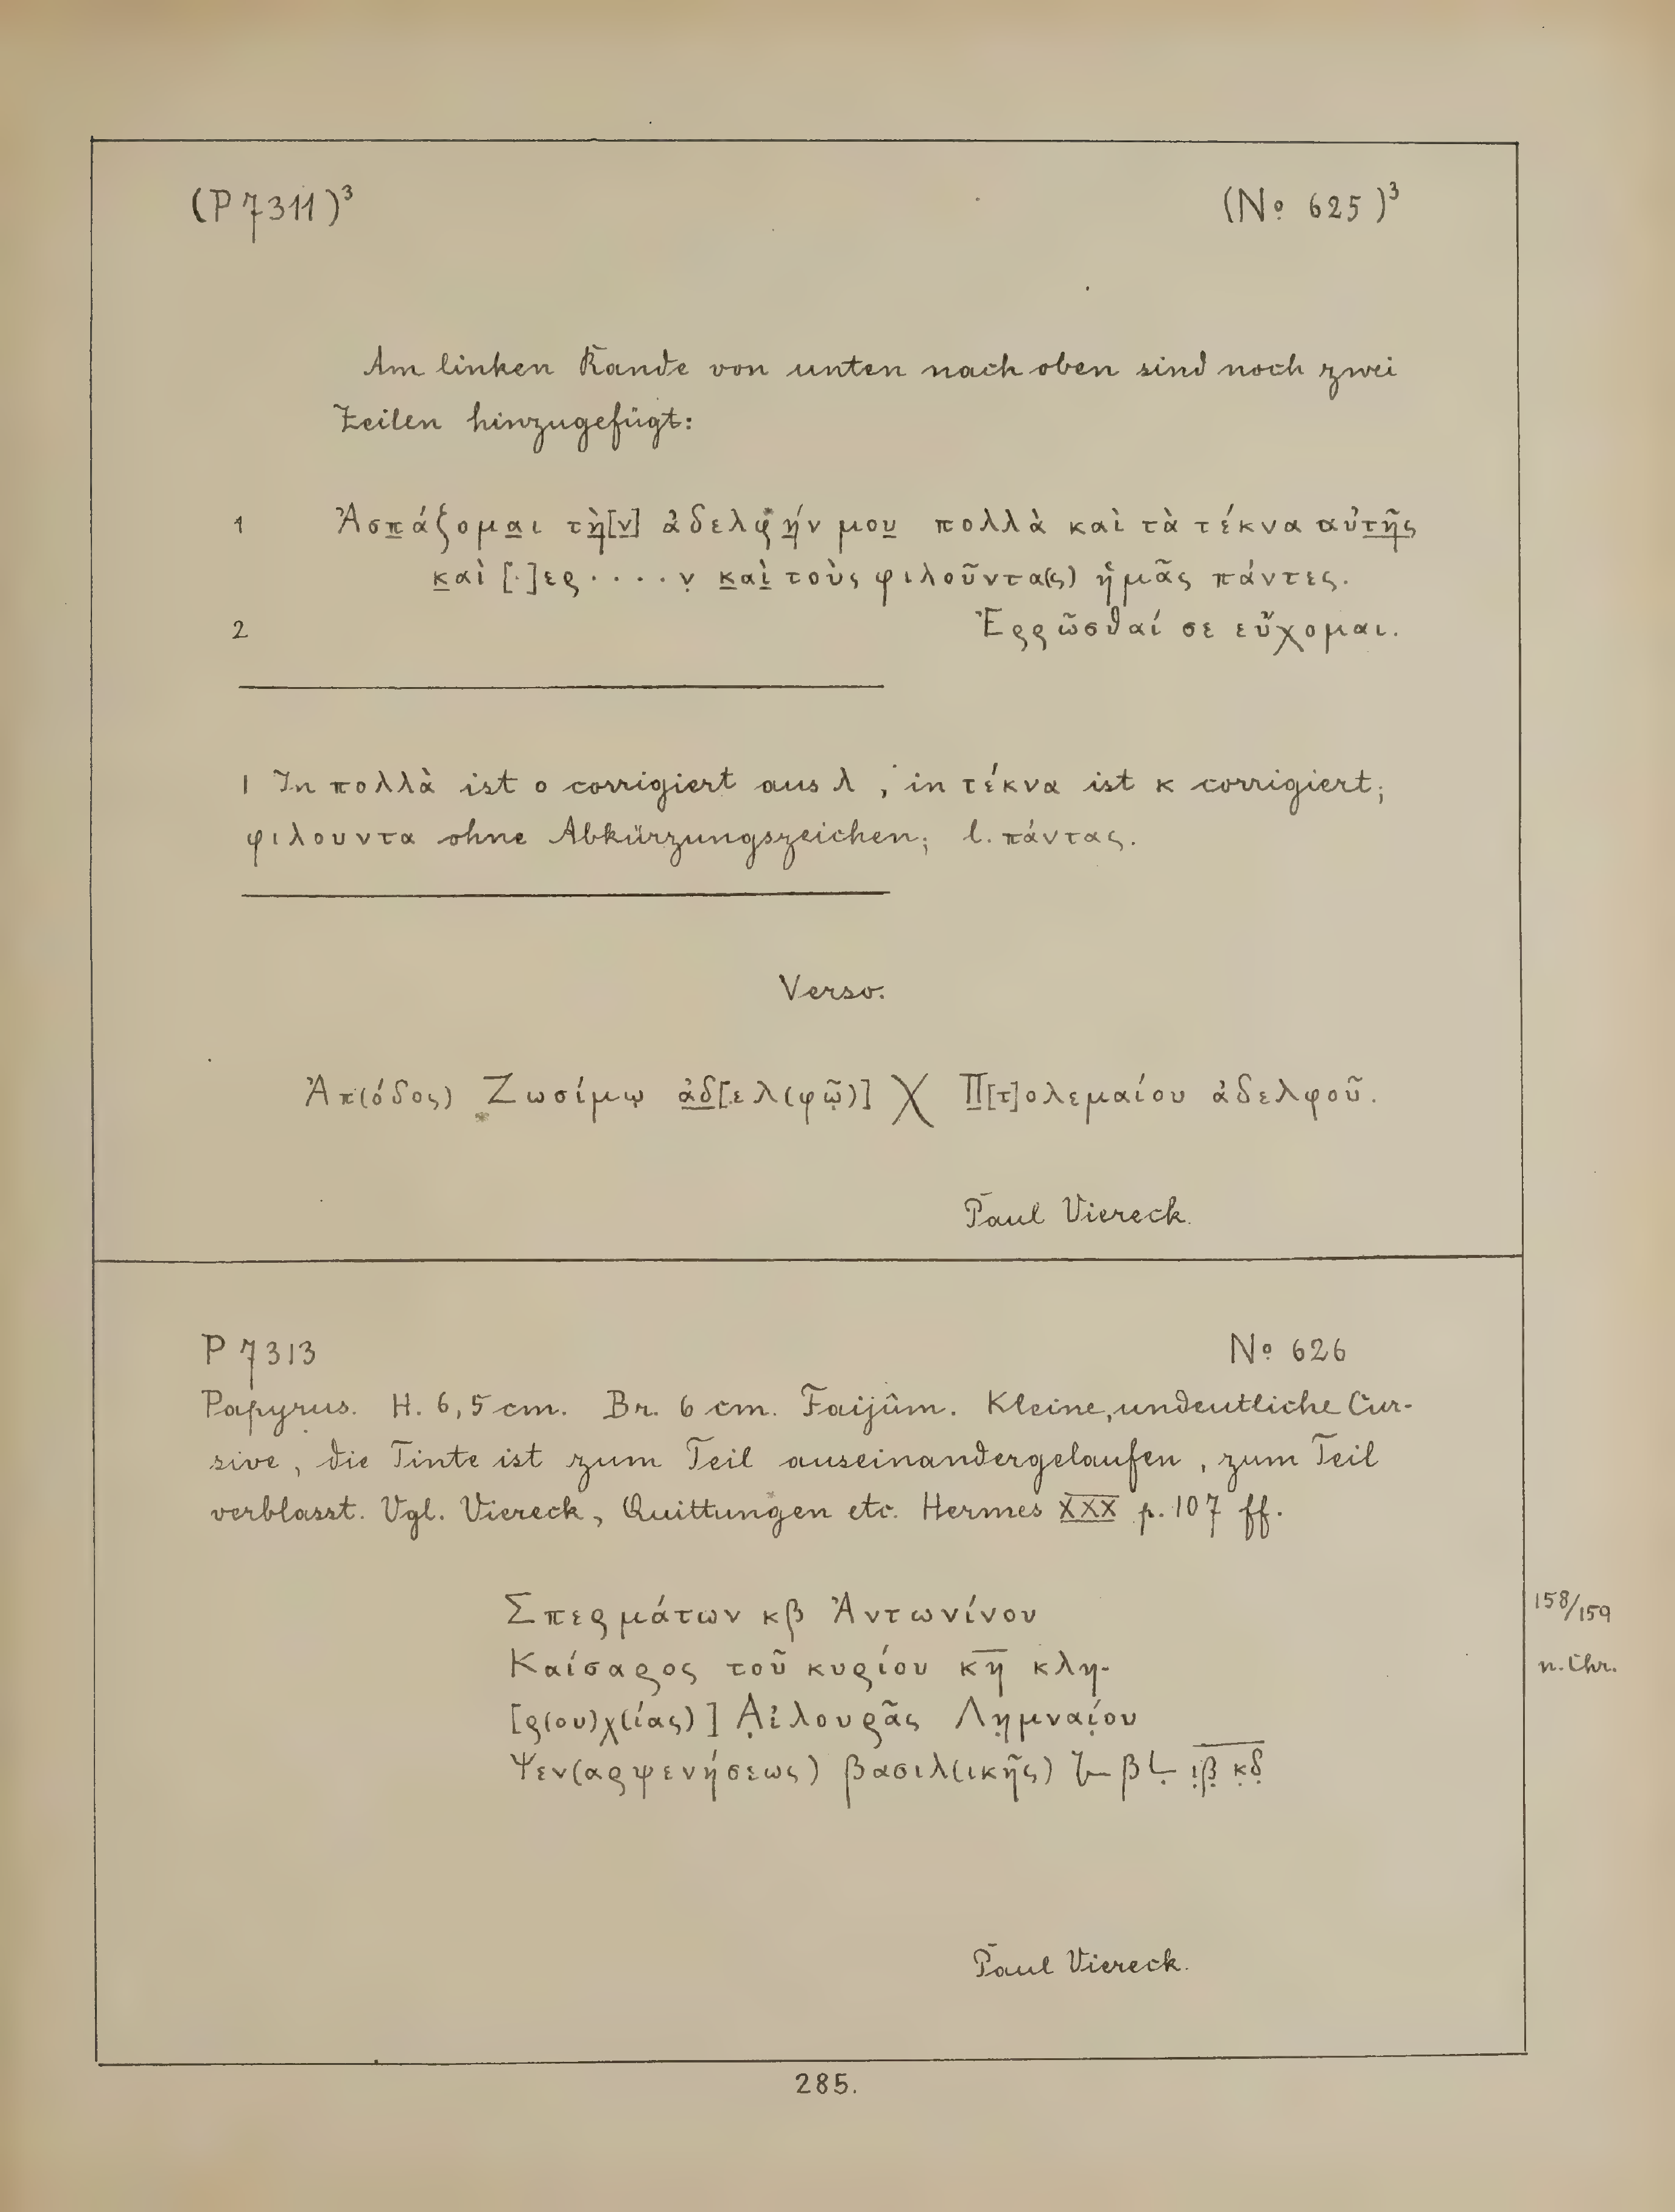 (P 7311)³ (Nº 625)³
Am linken Rande von unten nach oben sind noch zwei
Zeilen hinzugefügt:
1 Ἀσπάζομαι τὴ[ν] ἀδελφήν μου πολλὰ καὶ τὰ τέκνα αὐτῆς
καὶ [·]ερ····ν̣ καὶ τοὺς φιλοῦντα(ς) ἡμᾶς πάντες.
2 Ἐρρῶσθαί σε εὔχομαι.
1 In πολλὰ ist ο corrigiert aus λ, in τέκνα ist κ corrigiert;
φιλουντα ohne Abkürzungszeichen; l. πάντας.
Verso.
Ἀπ(όδος) Ζωσίμῳ ἀδ[ελ(φῷ)] X Π[τ]ολεμαίου ἀδελφοῦ.
Paul Viereck.
P 7313 Nº 626
Papyrus. H. 6,5 cm. Br. 6 cm. Faijûm. Kleine, undeutliche Cur-
sive, die Tinte ist zum Teil auseinandergelaufen, zum Teil
verblasst. Vgl. Viereck, Quittungen etc. Hermes XXX p. 107 ff.
Σπερμάτων κβ Ἀντωνίνου 158/159
Καίσαρος τοῦ κυρίου κη κλη- n. Chr.
[ρ(ου)χ(ίας)] Α̣ἰλουρᾶς Λη̣μναί̣ου
Ψεν(αρψενήσεως) βασιλ(ικῆς) β ι̣β̣ κ̣δ̣
Paul Viereck.
285.